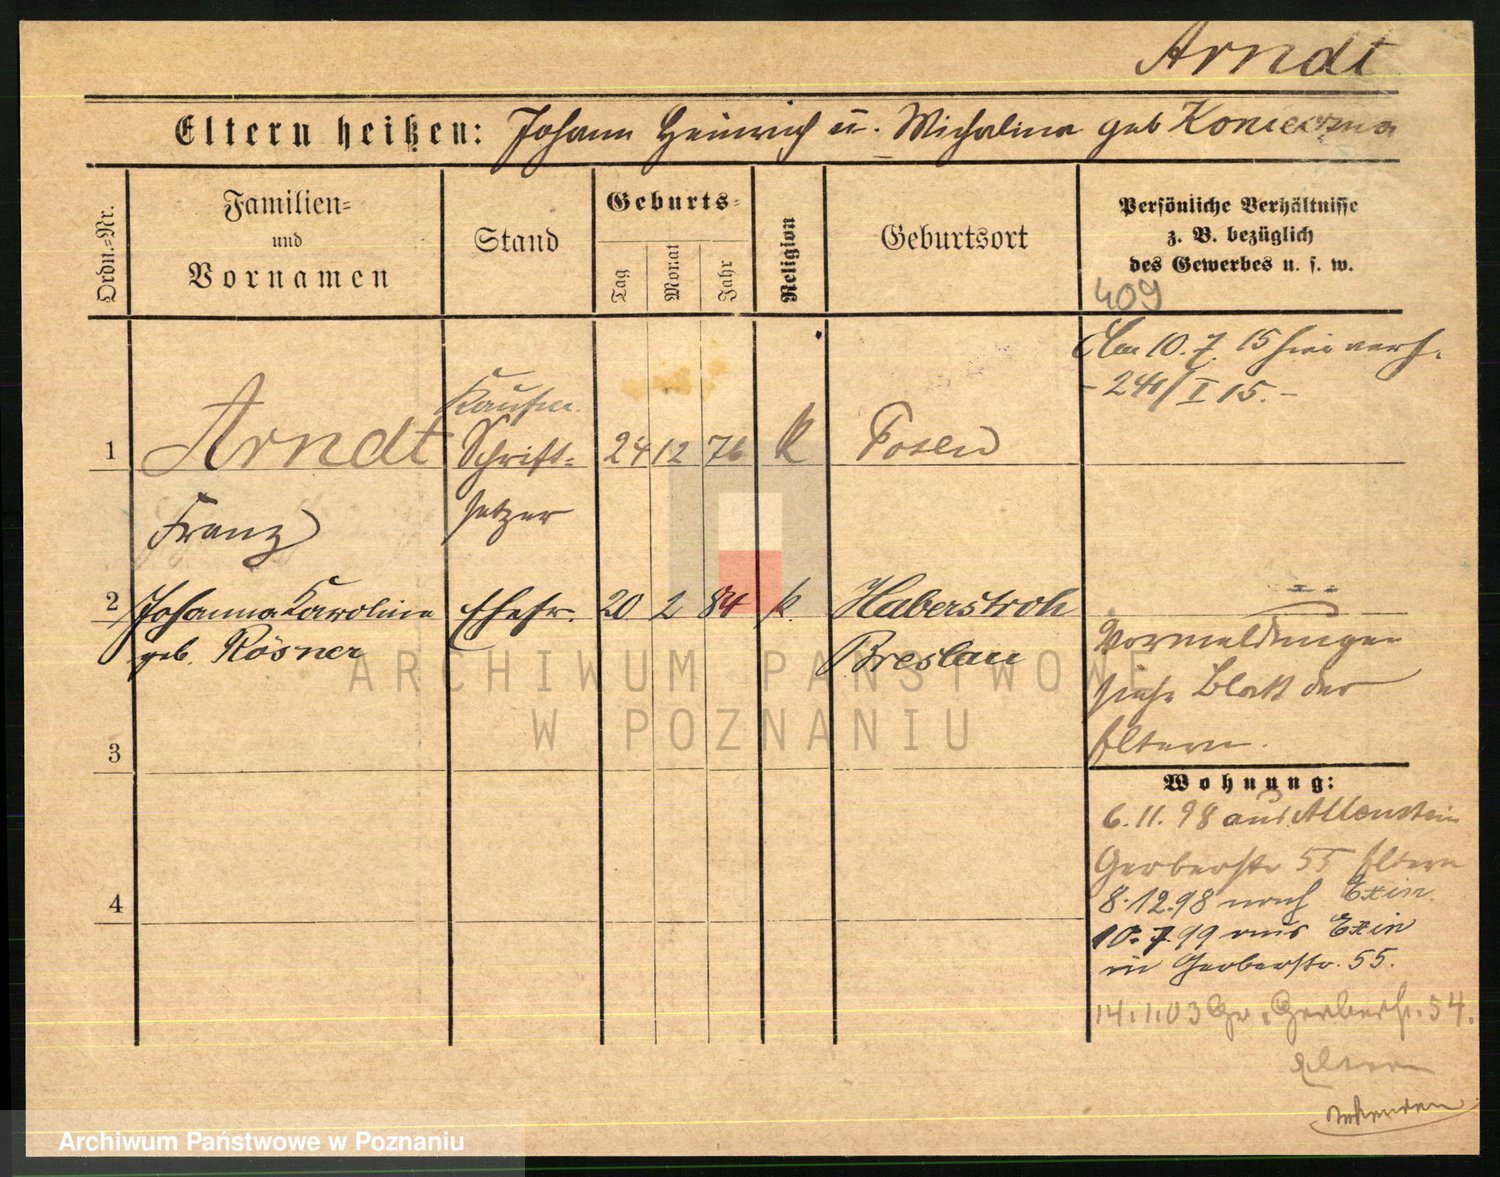 Arndt
Eltern heißen: Johann Heinrich u. Michalina geb Konieczna
Ordn.-Nr.
Familien-
und
Vornamen
Stand
Geburts-
Tag
Monat
Jahr
Religion
Geburtsort
Persönliche Verhältnisse
z. B. bezüglich
des Gewerbes u. s. w.
409
Am 10.7.15 hier
- 241/I 15. -
Kaufm.
1 Arndt Schrift- 24 12 76 K Posen
Franz setzer
2 Johanna Karoline Ehefr. 20 2 84 k. Haberstroh
geb. Rösner Breslau
Vormeldungen
siehe Blatt der
Eltern.
3
Wohnung:
6.11.98 aus Allenstein
Gerberstr 55 Eltern
4
8.12.98 nach Exin.
10.7.99 aus Exin
in Gerberstr. 55.
14.1.03 Gr. Gerberstr. 54.
Eltern
ARCHIWUM PAŃSTWOWE
W POZNANIU
Archiwum Państwowe w Poznaniu